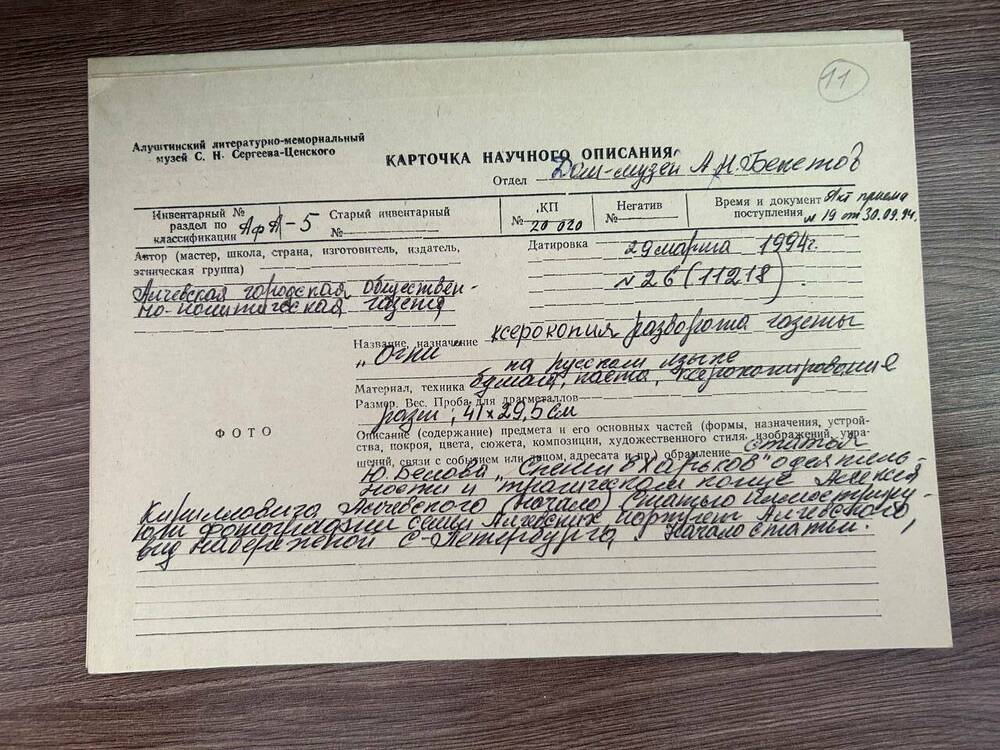 11
Алуштинский литературно-мемориальный
музей С. Н. Сергеева-Ценского
КАРТОЧКА НАУЧНОГО ОПИСАНИЯ
Отдел Дом-музей А.Н. Бекетов
Инвентарный №
раздел по
классификации АфА-5
Старый инвентарный
№
КП
№ 20 020
Негатив
№
Время и документ Акт приема
поступления № 19 от 30.09.94.
Автор (мастер, школа, страна, изготовитель, издатель,
этническая группа)
Алчевская городская обществен-
но-политическая газета
Датировка 29 марта 1994г.
№ 26 (11218).
Название, назначение ксерокопия разворота газеты
„Огни" на русском языке
Материал, техника бумага, паста, ксерокопирование
Размер. Вес. Проба для драгметаллов
разм; 41 х 29,5 см
ФОТО
Описание (содержание) предмета и его основных частей (формы, назначения, устрой-
ства, покроя, цвета, сюжета, композиции, художественного стиля, изображений, укра-
щений, связи с событием или лицом, адресата и пр.) обрамление статья
Ю. Белова „Спеши в Харьков" о деятель-
ности и трагическом конце Алексея
Кирилловича Алчевского (начало) Статью иллюстриру-
ют фотографии семьи Алчевских портрет Алчевского,
вид набережной С-Петербурга, начало статьи.